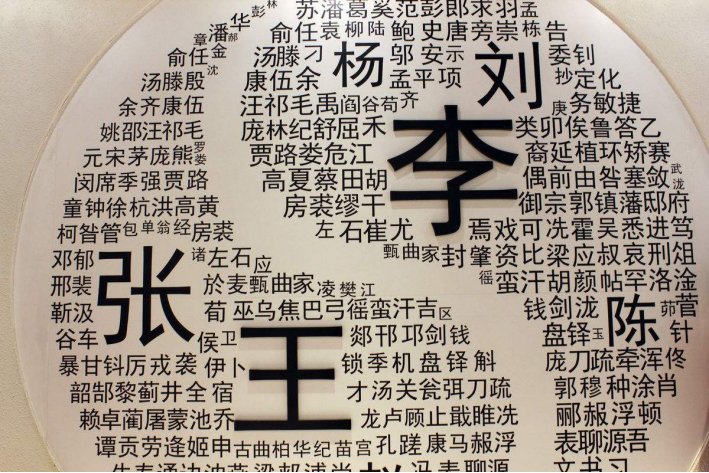 林
彭 苏潘葛奚范彭郎求羽孟
潘华郝 俞任袁柳陆鲍史唐旁崇栋告
章
俞金 汤滕刁杨邬安示刘委钊
沈
汤滕殷 康伍余 孟平项 抄定化
余齐康伍 汪祁毛禹阎谷荀齐 庚务敏捷
姚邵汪祁毛 庞林纪舒屈禾李类卯俟鲁答乙
元宋茅庞熊罗娄 贾路娄危江 裔延植环矫赛
闵席季强贾路 高夏蔡田胡 偶前由昝塞敛武泷
童钟徐杭洪高黄 房裘缪干 御宗郭镇藩邸府
柯昝管包单翁经房裘 左石崔尤 焉戏可冼霍吴悉进笃
邓郁张诸左石应 甄曲家封肇资比梁应叔哀刑俎
邢裴 於麦甄曲家凌樊江 徭蛮汗胡颜帕罕洛淦
靳汲 荀巫乌焦巴弓徭蛮汗吉区 钱剑泷陈茆菅
谷车 侯卫王 郯邗邛剑钱 盘铎玉 针
暴甘钭厉戎袭伊卜 锁季机盘铎斛 庞刀疏牵浑佟
韶郜黎蓟井全宿 才汤关瓮弭刀疏 郭穆种涂肖
赖卓蔺屠蒙池乔 龙卢顾止戢睢冼 郦赧浮顿
谭贡劳逄姬申古曲柏华纪苗宫孔蹉康马赧浮 表聊源吾
冯表聊源 文书习